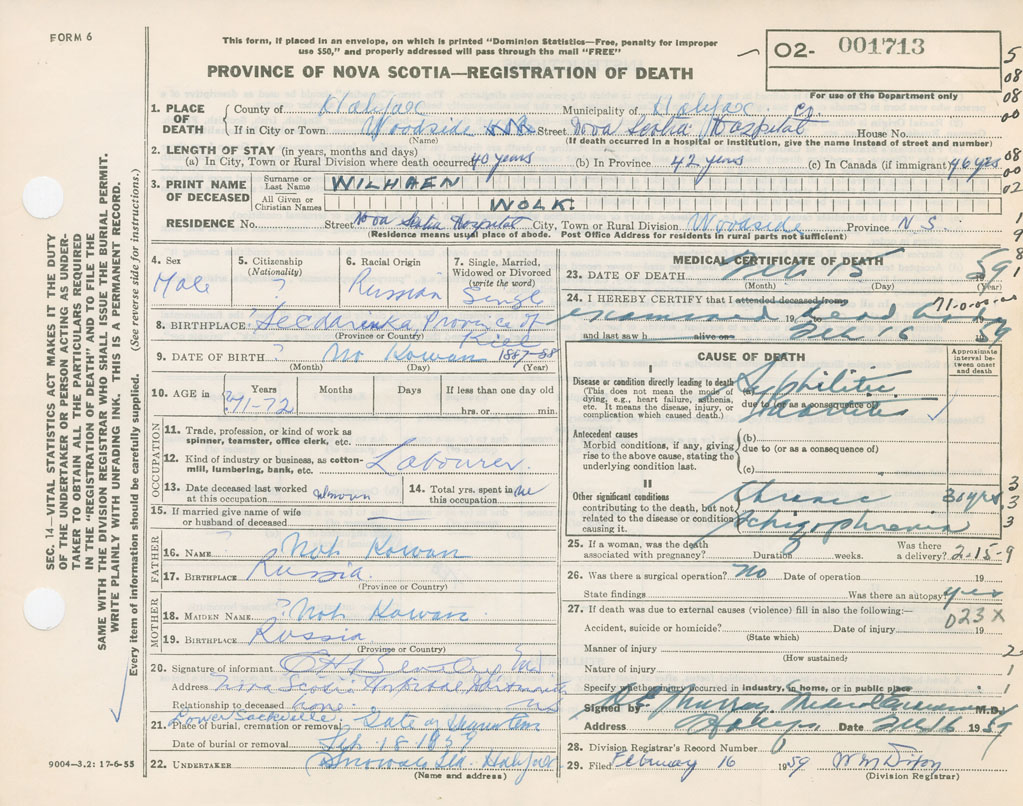 FORM 6
This form, if placed in an envelope, on which is printed "Dominion Statistics—Free, penalty for improper
use $50," and properly addressed will pass through the mail "FREE"
O2- 001713
PROVINCE OF NOVA SCOTIA—REGISTRATION OF DEATH
For use of the Department only
1. PLACE OF DEATH County of Halifax Municipality of Halifax Co
If in City or Town Woodside Street Nova Scotia Hospital House No.
(Name) (If death occurred in a hospital or institution, give the name instead of street and number)
2. LENGTH OF STAY (in years, months and days)
(a) In City, Town or Rural Division where death occurred 40 years (b) In Province 42 years (c) In Canada (if immigrant) 46 yrs
3. PRINT NAME OF DECEASED
Surname or Last Name WILHAEN
All Given or Christian Names WOLK
RESIDENCE No. Street Nova Scotia Hospital City, Town or Rural Division Woodside Province N S.
(Residence means usual place of abode. Post Office Address for residents in rural parts not sufficient)
4. Sex Male
5. Citizenship (Nationality) ?
6. Racial Origin Russian
7. Single, Married, Widowed or Divorced (write the word) Single
8. BIRTHPLACE Province of
(Province or Country)
9. DATE OF BIRTH ? No Kowan 1887-88
(Month) (Day) (Year)
10. AGE in Years Months Days If less than one day old
?71-72 hrs. or min.
OCCUPATION
11. Trade, profession, or kind of work as spinner, teamster, office clerk, etc.
12. Kind of industry or business, as cotton-mill, lumbering, bank, etc. Labourer.
13. Date deceased last worked at this occupation
14. Total yrs. spent in
15. If married give name of wife or husband of deceased —
FATHER
16. NAME ? Not Kowan
17. BIRTHPLACE Russia
(Province or Country)
MOTHER
18. MAIDEN NAME ? Not Kowan
19. BIRTHPLACE Russia
(Province or Country)
20. Signature of informant
Address Nova Scotia Hospital Dartmouth NS
Relationship to deceased none
Lower Sackville
21. Place of burial, cremation or removal Gate of
Date of burial or removal Feb. 18 1959
22. UNDERTAKER Snows Ltd. Halifax
(Name and address)
MEDICAL CERTIFICATE OF DEATH
23. DATE OF DEATH Feb 15 59
(Month) (Day) (Year)
24. I HEREBY CERTIFY that I attended deceased from
examined dead body 19
and last saw h alive on Feb 16 59
CAUSE OF DEATH
Approximate interval between onset and death
I
Disease or condition directly leading to death (a) Syphilitic
(This does not mean the mode of dying, e.g., heart failure, asthenia, etc. It means the disease, injury, or complication which caused death.)
due to (or as a consequence of)
Antecedent causes
Morbid conditions, if any, giving rise to the above cause, stating the underlying condition last.
(b)
due to (or as a consequence of)
(c)
II
Other significant conditions Chronic 30 yrs.
contributing to the death, but not related to the disease or condition causing it. Schizophrenia
25. If a woman, was the death associated with pregnancy? Duration weeks. Was there a delivery? 2-15-9
26. Was there a surgical operation? No Date of operation 19
State findings Was there an autopsy? yes
27. If death was due to external causes (violence) fill in also the following:—
023X
Accident, suicide or homicide? Date of injury 19
(State which)
Manner of injury
(How sustained)
Nature of injury
Specify whether injury occurred in industry, in home, or in public place
Signed by Murray Medical Examiner M.D.
Address Halifax Date Feb 16 1959
28. Division Registrar's Record Number
29. Filed February 16 1959 Wm Dixon
(Division Registrar)
SEC. 14—VITAL STATISTICS ACT MAKES IT THE DUTY
OF THE UNDERTAKER OR PERSON ACTING AS UNDER-
TAKER TO OBTAIN ALL THE PARTICULARS REQUIRED
IN THE "REGISTRATION OF DEATH" AND TO FILE THE
SAME WITH THE DIVISION REGISTRAR WHO SHALL ISSUE THE BURIAL PERMIT.
WRITE PLAINLY WITH UNFADING INK. THIS IS A PERMANENT RECORD.
Every item of information should be carefully supplied. (See reverse side for instructions.)
9004—3.2: 17-6-55